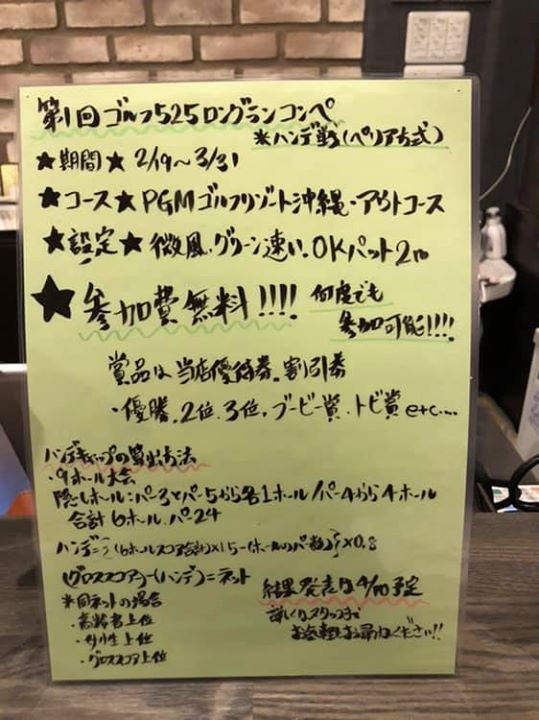 第1回ゴルフ525ロングランコンペ
※ハンデ戦(ペリア方式)
★期間★ 2/19〜3/31
★コース★ PGMゴルフリゾート沖縄・アウトコース
★設定★ 微風、グリーン速い、OKパット2m
★参加費無料!!!! 何度でも
参加可能!!!!
賞品は当店優待券、割引券
・優勝、2位、3位、ブービー賞、トビ賞 etc....
ハンデキャップの算出方法
・9ホール大会
隠しホール:パー3とパー5から各1ホール/パー4から4ホール
合計6ホール、パー24
ハンデ={(6ホールスコア合計)×1.5-(ホールのパー数)}×0.8
(グロススコア)-(ハンデ)=ネット
※同ネットの場合
・高齢者上位
・女性上位
・グロススコア上位
結果発表は4/10予定
詳しくはスタッフまで
お気軽にお尋ねください!!